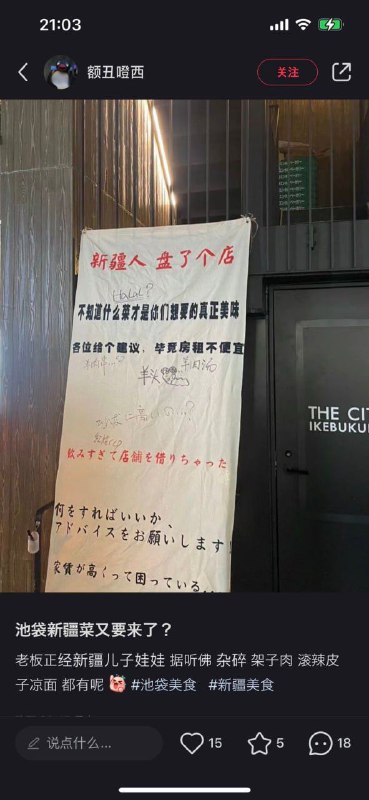 21:03
额丑噔西
关注
新疆人 盘了个店
HaLaL?
不知道什么菜才是你们想要的真正美味
各位给个建议、毕竟房租不便宜
羊头
羊肉汤
飲みすぎて店舗を借りちゃった
何をすればいいか、
アドバイスをお願いします!
家賃が高くって困っている...
THE CIT
IKEBUKU
池袋新疆菜又要来了？
老板正经新疆儿子娃娃 据听佛 杂碎 架子肉 滚辣皮
子凉面 都有呢 #池袋美食 #新疆美食
说点什么...
15
5
18